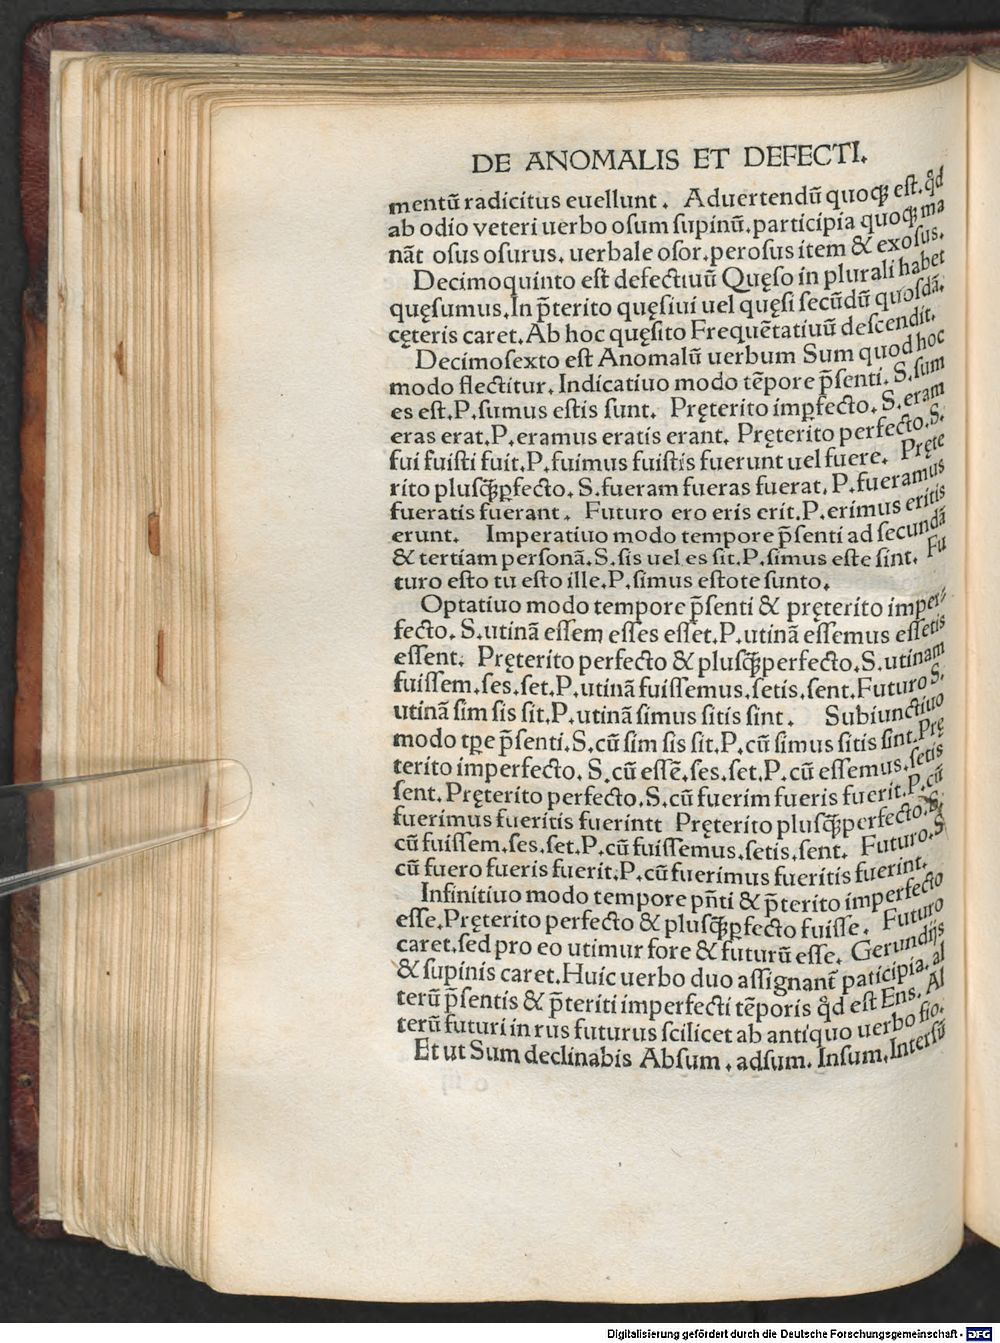 DE ANOMALIS ET DEFECTI.
mentũ radicitus euellunt. Aduertendũ quoqꝫ eſt. ꝙd
ab odio veteri uerbo oſum ſupinũ. participia quoqꝫ ma
nãt oſus oſurus. uerbale oſor. peroſus item & exoſus.
Decimoquinto eſt defectiuũ Quęſo in plurali habet
quęſumus. In p̃terito quęſiui uel quęſi ſecũdũ quoſdã.
cęteris caret. Ab hoc quęſito Frequẽtatiuũ deſcendit.
Decimoſexto eſt Anomalũ uerbum Sum quod hoc
modo flectitur. Indicatiuo modo tẽpore p̃ſenti. S. ſum
es eſt. P. ſumus eſtis ſunt. Pręterito imꝑfecto. S. eram
eras erat. P. eramus eratis erant. Pręterito perfecto. S.
fui fuiſti fuit. P. fuimus fuiſtis fuerunt uel fuere. Pręte
rito pluſqꝫꝑfecto. S. fueram fueras fuerat. P. fueramus
fueratis fuerant. Futuro ero eris erit. P. erimus eritis
erunt. Imperatiuo modo tempore p̃ſenti ad ſecundã
& tertiam perſonã. S. ſis uel es ſit. P. ſimus eſte ſint. Fu
turo eſto tu eſto ille. P. ſimus eſtote ſunto.
Optatiuo modo tempore p̃ſenti & pręterito imper-
fecto. S. utinã eſſem eſſes eſſet. P. utinã eſſemus eſſetis
eſſent. Pręterito perfecto & pluſqꝫperfecto. S. utinam
fuiſſem. ſes. ſet. P. utinã fuiſſemus. ſetis. ſent. Futuro S.
utinã ſim ſis ſit. P. utinã ſimus ſitis ſint. Subiunctiuo
modo tꝑe p̃ſenti. S. cũ ſim ſis ſit. P. cũ ſimus ſitis ſint. Prę
terito imperfecto. S. cũ eſſẽ. ſes. ſet. P. cũ eſſemus. ſetis
ſent. Pręterito perfecto. S. cũ fuerim fueris fuerit. P. cũ
fuerimus fueritis fuerintt Pręterito pluſqꝫperfecto. S.
cũ fuiſſem. ſes. ſet. P. cũ fuiſſemus. ſetis. ſent. Futuro. S
cũ fuero fueris fuerit. P. cũ fuerimus fueritis fuerint.
Infinitiuo modo tempore pñti & p̃terito imperfecto
eſſe. Pręterito perfecto & pluſqꝫꝑfecto fuiſſe. Futuro
caret. ſed pro eo utimur fore & futurũ eſſe. Gerundijs
& ſupinis caret. Huic uerbo duo aſſignant̃ paticipia. al
terũ p̃ſentis & p̃teriti imperfecti tẽporis ꝙd eſt Ens. Al
terũ futuri in rus futurus ſcilicet ab antiquo uerbo fio.
Et ut Sum declinabis Abſum. adſum. Inſum. Interſũ
Digitalisierung gefördert durch die Deutsche Forschungsgemeinschaft - DFG